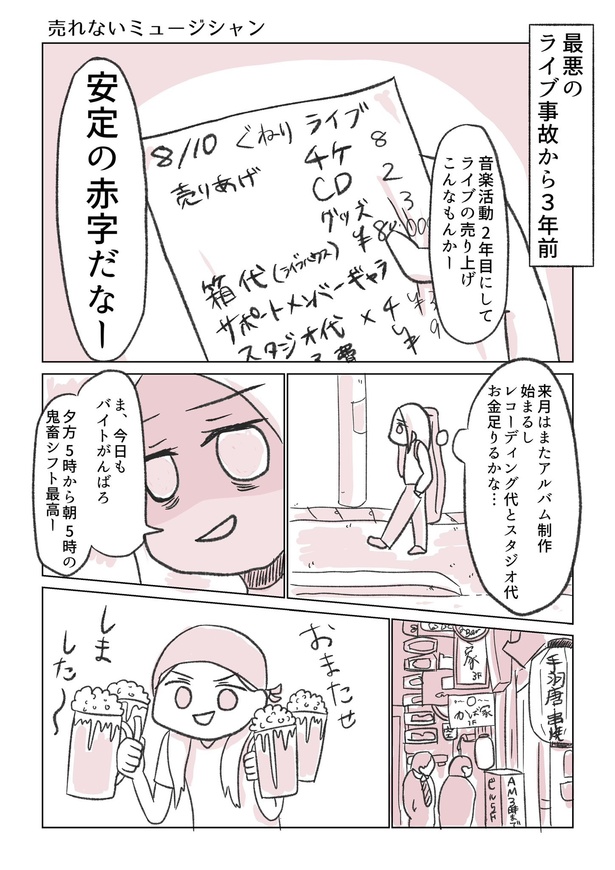 売れないミュージシャン
最悪の
ライブ事故から3年前
音楽活動2年目にして
ライブの売り上げ
こんなもんかー
8/10 ぐねり ライブ
売りあげ チケ 8
CD 2
グッズ 13
箱代(ライブハウス)
サポートメンバーギャラ
スタジオ代×4
安定の赤字だなー
来月はまたアルバム制作
始まるし
レコーディング代とスタジオ代
お金足りるかな…
ま、今日も
バイトがんばろ
夕方5時から朝5時の
鬼畜シフト最高ー
家
3F
かば家
1F
手羽唐 串焼
AM3時まで
おまたせ
しま
した〜